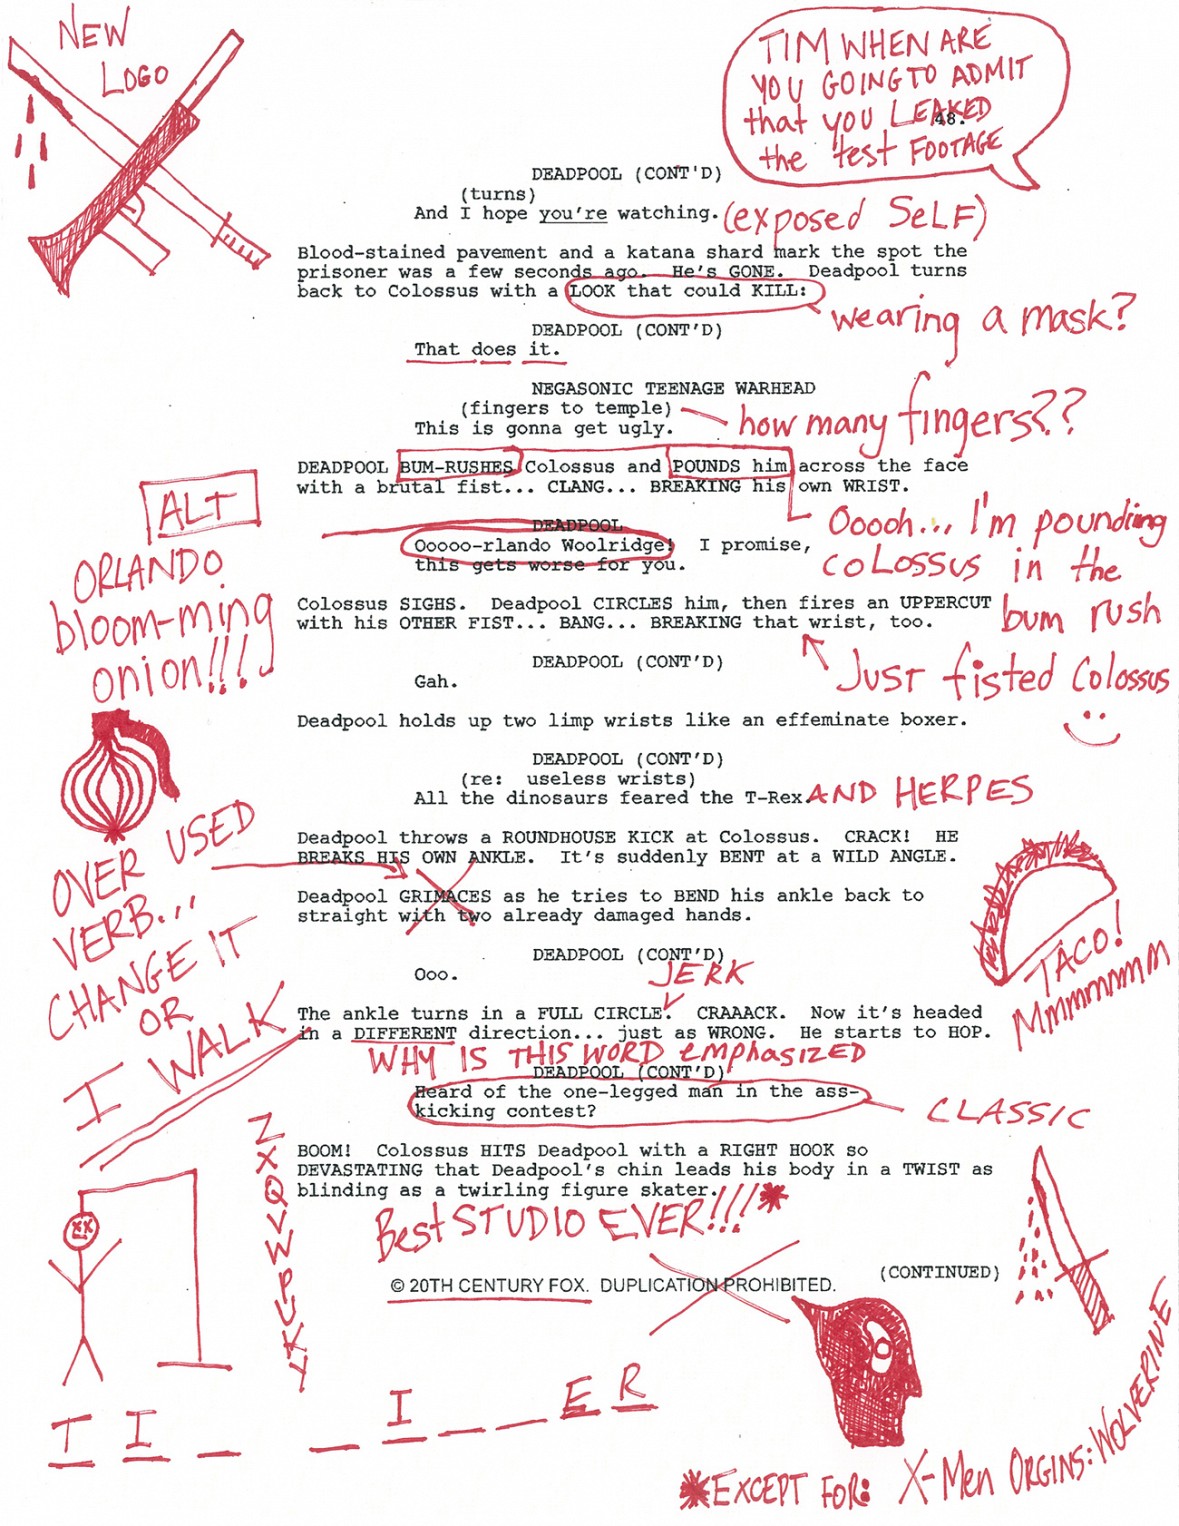 NEW
LOGO
TIM WHEN ARE
YOU GOING TO ADMIT
that you LEAKED
the test FOOTAGE
48.
DEADPOOL (CONT'D)
(turns)
And I hope you're watching. (exposed SELF)
Blood-stained pavement and a katana shard mark the spot the
prisoner was a few seconds ago. He's GONE. Deadpool turns
back to Colossus with a LOOK that could KILL:
wearing a mask?
DEADPOOL (CONT'D)
That does it.
NEGASONIC TEENAGE WARHEAD
(fingers to temple)
how many fingers??
This is gonna get ugly.
DEADPOOL BUM-RUSHES Colossus and POUNDS him across the face
with a brutal fist... CLANG... BREAKING his own WRIST.
Ooooh... I'm pounding
COLOSSUS in the
bum rush
ALT
ORLANDO
bloom-ming
onion!!!
DEADPOOL
Ooooo-rlando Woolridge! I promise,
this gets worse for you.
Colossus SIGHS. Deadpool CIRCLES him, then fires an UPPERCUT
with his OTHER FIST... BANG... BREAKING that wrist, too.
JUST fisted Colossus
DEADPOOL (CONT'D)
Gah.
Deadpool holds up two limp wrists like an effeminate boxer.
DEADPOOL (CONT'D)
(re: useless wrists)
All the dinosaurs feared the T-Rex. AND HERPES
Deadpool throws a ROUNDHOUSE KICK at Colossus. CRACK! HE
BREAKS HIS OWN ANKLE. It's suddenly BENT at a WILD ANGLE.
OVER USED
VERB...
CHANGE IT
OR
I WALK
Deadpool GRIMACES as he tries to BEND his ankle back to
straight with two already damaged hands.
TACO!
Mmmmmmm
DEADPOOL (CONT'D)
Ooo.
JERK
The ankle turns in a FULL CIRCLE. CRAAACK. Now it's headed
in a DIFFERENT direction... just as WRONG. He starts to HOP.
WHY IS THIS WORD EMPHASIZED
DEADPOOL (CONT'D)
Heard of the one-legged man in the ass-
kicking contest?
CLASSIC
BOOM! Colossus HITS Deadpool with a RIGHT HOOK so
DEVASTATING that Deadpool's chin leads his body in a TWIST as
blinding as a twirling figure skater.
Best STUDIO EVER!!!*
(CONTINUED)
© 20TH CENTURY FOX. DUPLICATION PROHIBITED.
Z
X
Q
V
W
P
U
K
Y
T I _ _ I _ _ E R
*EXCEPT FOR: X-Men ORGINS: WOLVERINE